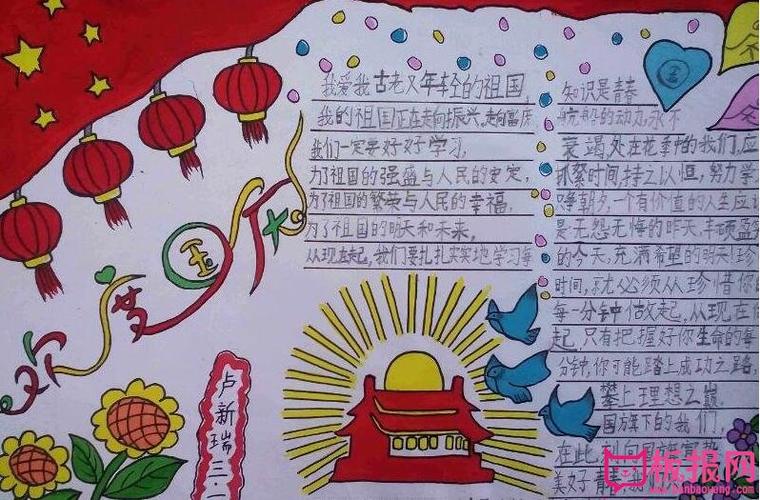 欢度国庆
我爱我古老又年轻的祖国,
我的祖国正在走向振兴、走向富庶
我们一定要好好学习,
为了祖国的强盛与人民的安定,
为了祖国的繁荣与人民的幸福,
为了祖国的明天和未来,
从现在起,我们要扎扎实实地学习每
国
知识是青春
般的动力,永不
衰竭,处在花季中的我们,应
抓紧时间,持之以恒,努力学
争朝夕,一个有价值的人生应
是无怨无悔的昨天,丰硕盈
的今天,充满希望的明天!珍
时间,就必须从珍惜你
每一分钟做起,从现在
起,只有把握好你生命的每
分钟,你可能踏上成功之路,
攀上理想之巅.
国旗下的我们,
在此,
美好青春
卢新瑞三.一
板报网
www.banbaowang.com